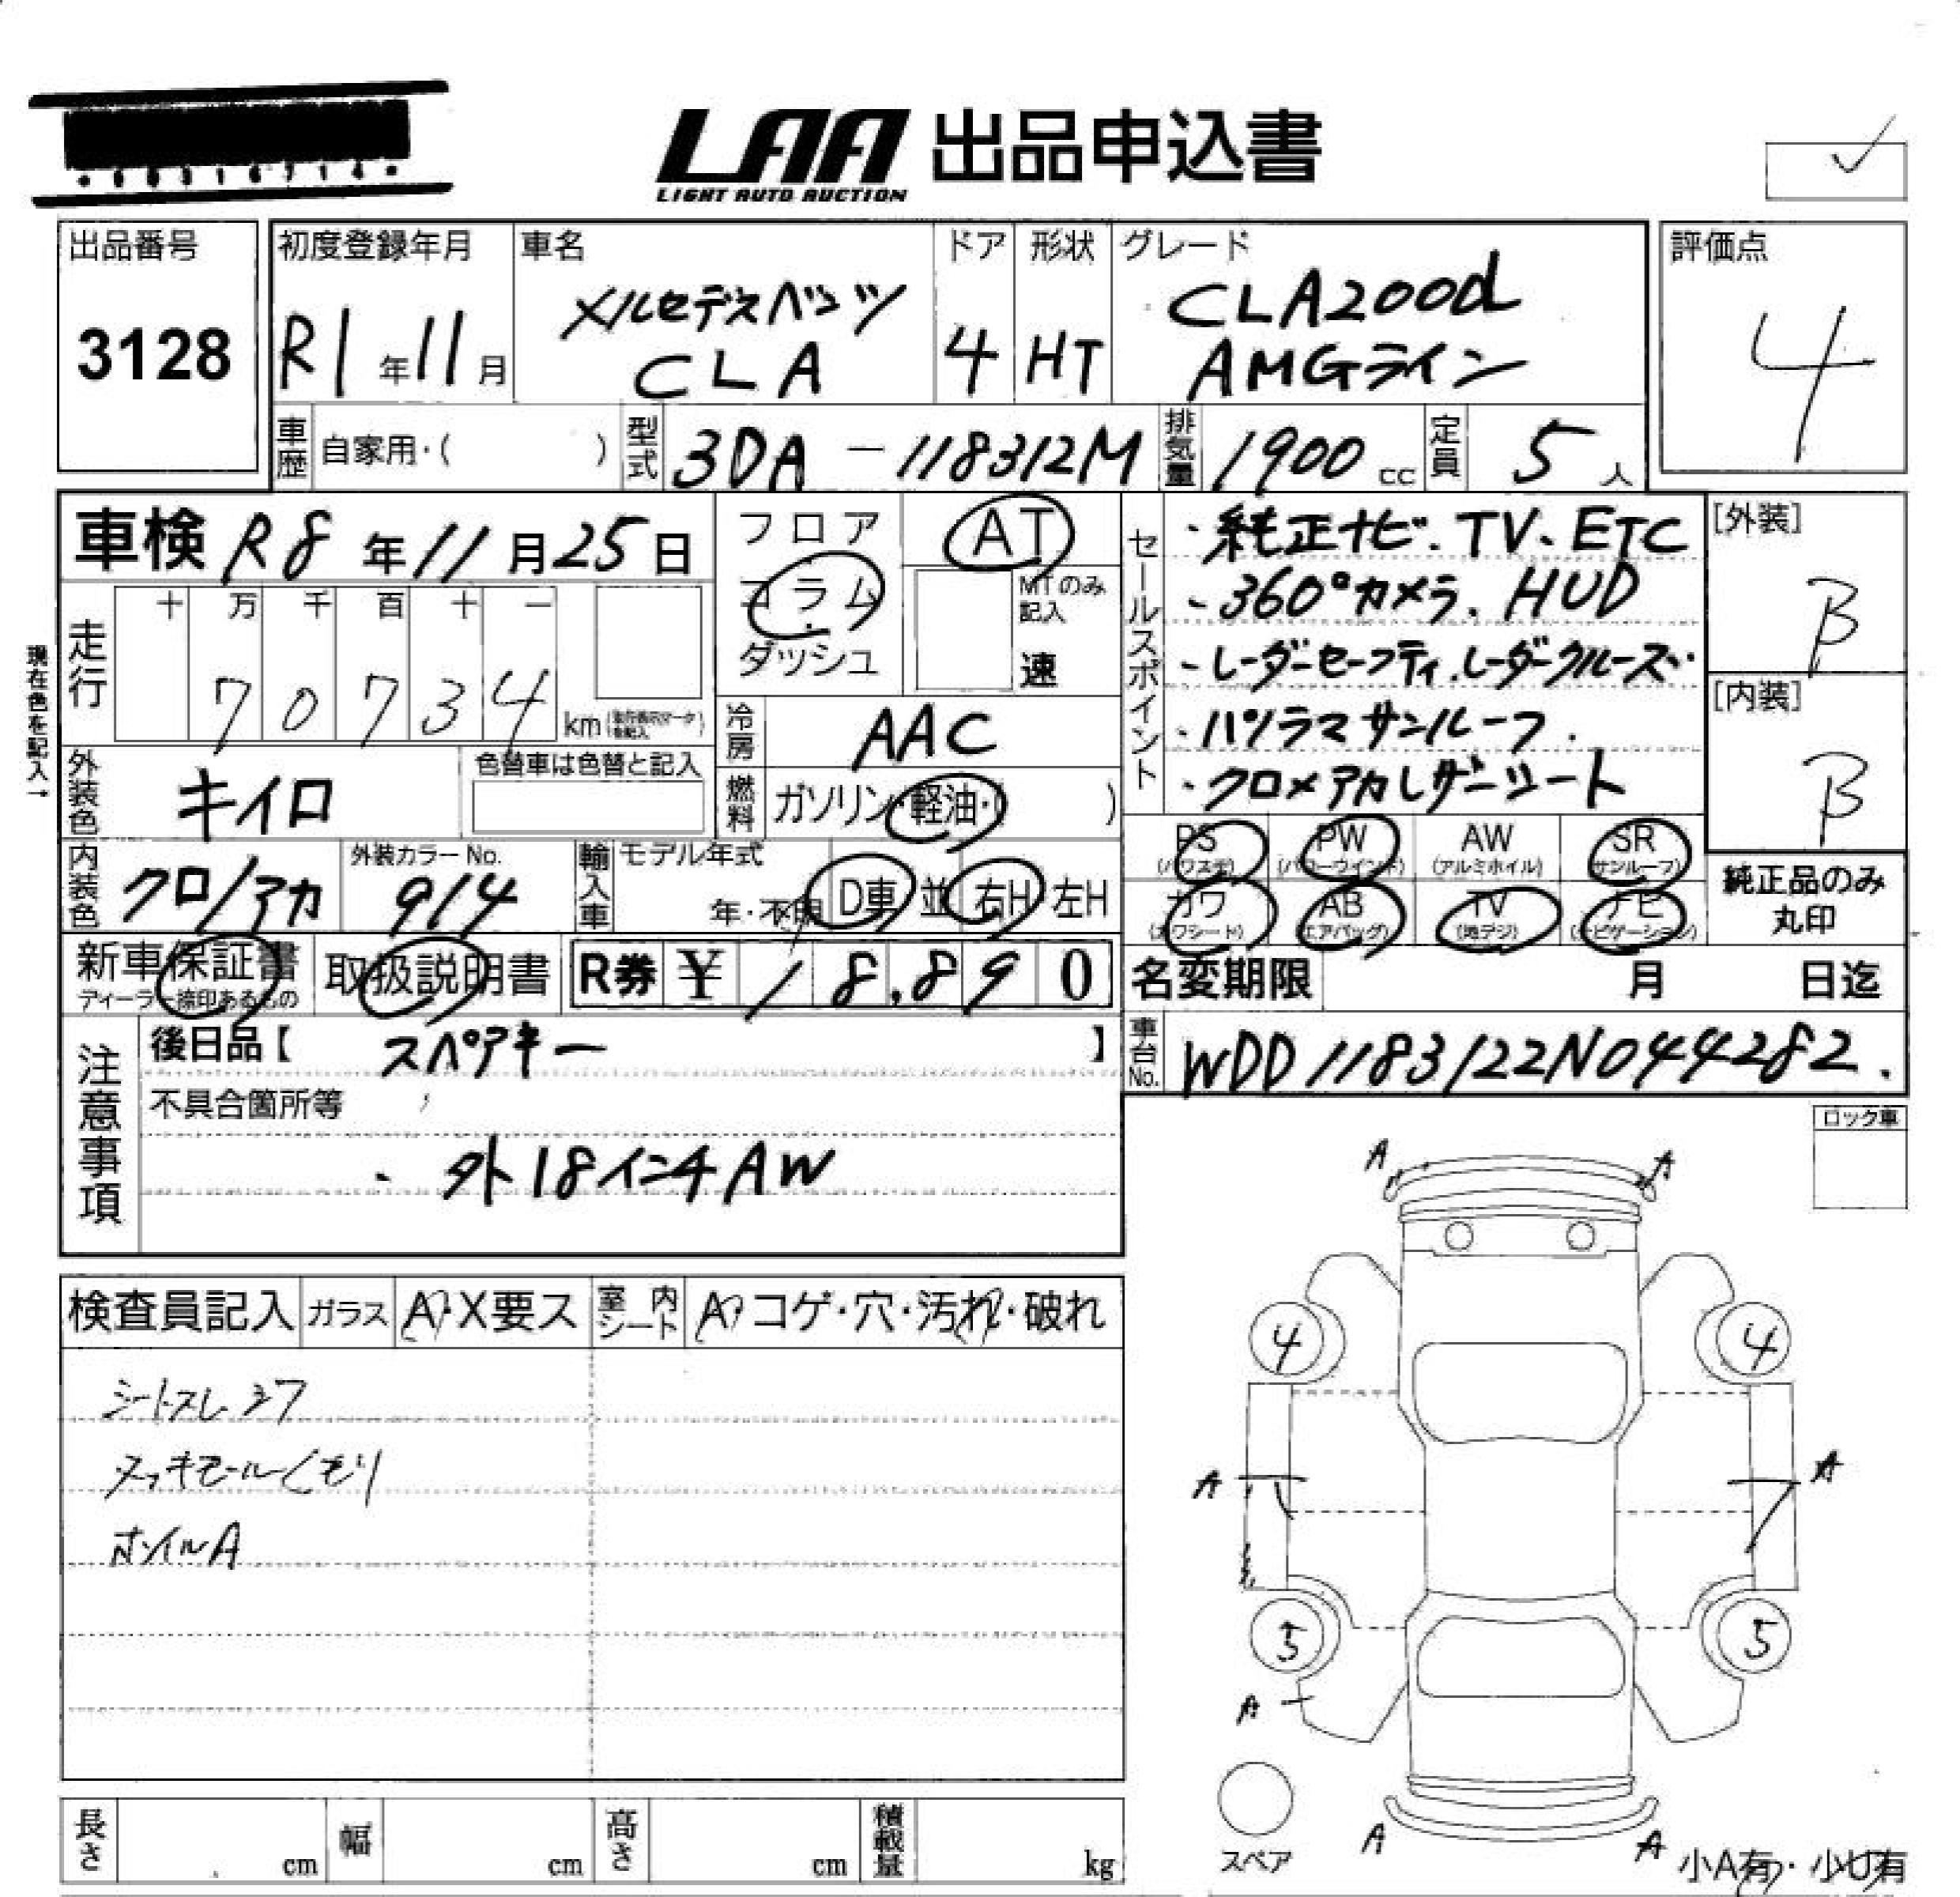 LAA 出品申込書
LIGHT AUTO AUCTION
出品番号
3128
初度登録年月
R1年11月
車名
メルセデスベンツ
CLA
ドア
4
形状
HT
グレード
CLA200d
AMGライン
評価点
4
車歴 自家用・( )
型式 3DA-118312M
排気量 1900cc
定員 5人
車検 R8年11月25日
現在色を記入→
走行
十 万 千 百 十 一
7 0 7 3 4 km
フロア
コラム
ダッシュ
AT
MTのみ
記入
速
冷房 AAC
燃料 ガソリン・軽油・( )
外装色 キイロ
色替車は色替と記入
内装色 クロ/アカ
外装カラーNo.
914
輸入車 モデル年式
年・不明 D車 並 右H 左H
セールスポイント
・純正ナビ、TV、ETC
・360°カメラ、HUD
・レーダーセーフティ、レーダークルーズ
・パノラマサンルーフ
・クロ×アカレザーシート
[外装]
B
[内装]
B
PS PW AW SR
(パワステ) (パワーウインド) (アルミホイル) (サンルーフ)
カワ AB TV ナビ
(カワシート) (エアバッグ) (地デジ) (ナビゲーション)
純正品のみ
丸印
新車保証書
ディーラー捺印あるもの
取扱説明書
R券 ¥ 18,890
名変期限 月 日迄
車台No. WDD1183122N044282.
注意事項
後日品【 スペアキー 】
不具合箇所等
・外18インチAW
ロック車
検査員記入 ガラス A・X要ス 室内シート A・コゲ・穴・汚れ・破れ
シートスレ シワ
メッキモールくもり
ホイルA
A A
4 4
A A
5 5
A
A A
スペア
小A有・小U有
長さ cm 幅 cm 高さ cm 積載量 kg